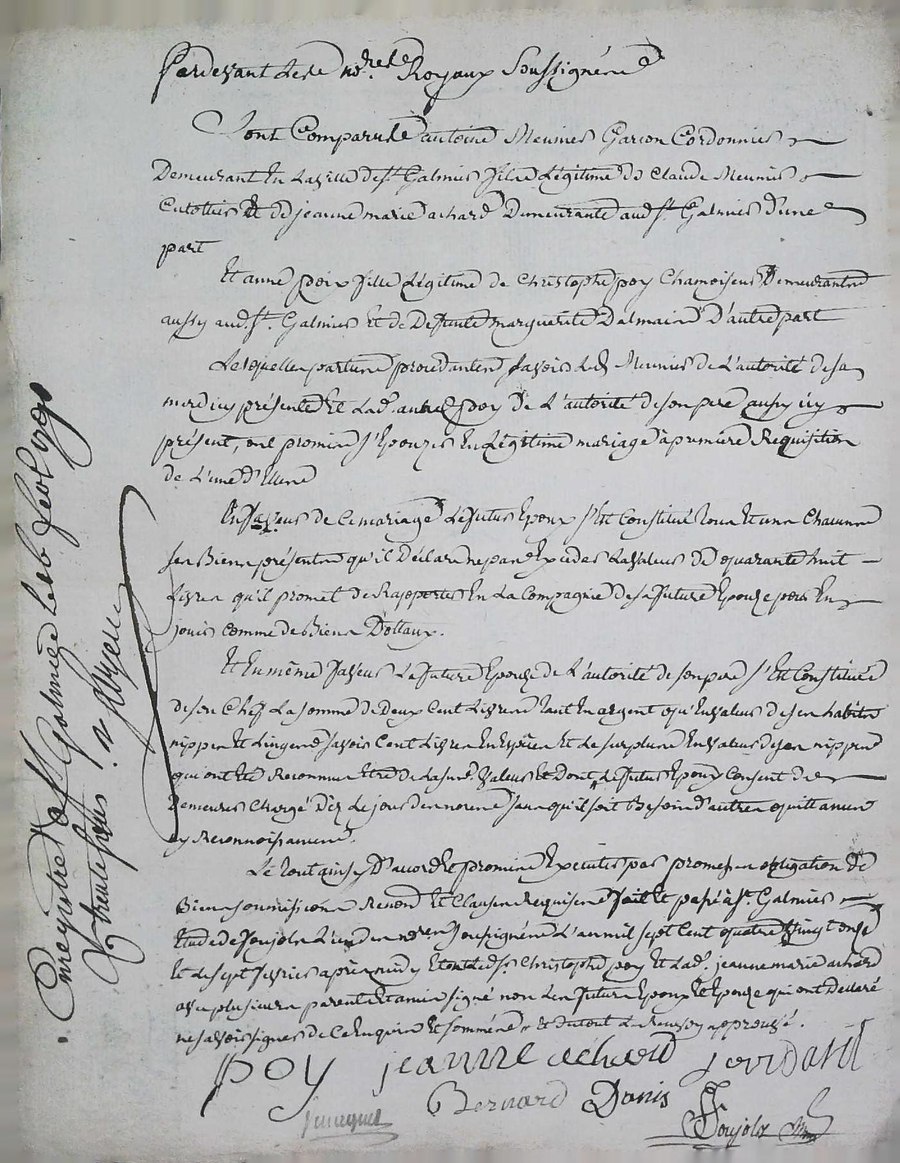 Pardevant les nores Royaux Soussignés
Sont Comparus antoine Meunier Garcon Cordonnier
Demeurant En La ville de St Galmier fils Légitime de Claude Meunier
Et de jeanne marie achard Demeurante aud. St. Galmier d'une
part
Et anne poix fille Légitime de Christophe poy Chamoiseur Demeurante
aussy aud. St. Galmier Et de Defunte marguerite Dalmais D'autre part
Lesquelles parties procedantes savoir Led Meunier de L'autorité de sa
mere icy présente Et Lad. anne poy De L'autorité de son pere aussy icy
présent, ont promis s'Epouser En Légitime mariage à premiere Requisition
de L'une d'Elles
En faveur de Ce mariage Le futur Epoux s'Est Constitué tous Et uns Chacuns
ses Biens présents qu'il Déclare ne pas Exceder La valeur de quarante huit
Livres qu'il promet de Rapporter En La Compagnie de sa future Epouse pour En
jouir Comme de Biens Dottaux.
Et En même faveur La future Epouse de L'autorité de son pere s'Est Constituée
de son Chef La somme de Deux Cent Livres tant En argent qu'En valeur de ses habits
nippes Et Linges savoir Cent Livres En Espèces Et Le surplus En valeur de ses nippes
qui ont Eté Reconnus Etre de La sus. valeur Et dont Le futur Epoux Consent de
demeurer Chargé Dez Le jour des noces sans qu'il soit Besoin d'autres quittances
ny Reconnoissances
Le tout ainsy D'accord Et promis Executer par promesses obligation de
Biens soumissions Renons Et Clauses Requises fait Et passé à St. Galmier
Etude de Soujols L'un des nores soussignés L'an mil sept Cent quatre vingt onze
Et Le sept fevrier après midy Et ont Led. s. Christophe poy Et Lad. jeanne marie achard
avec plusieurs parents Et amis signé non Les futurs Epoux Et Epouse qui ont Declaré
ne savoir signer de Ce Enquis Et sommés
poy jeanne achard jourdand
Bernard Danis
Soujols